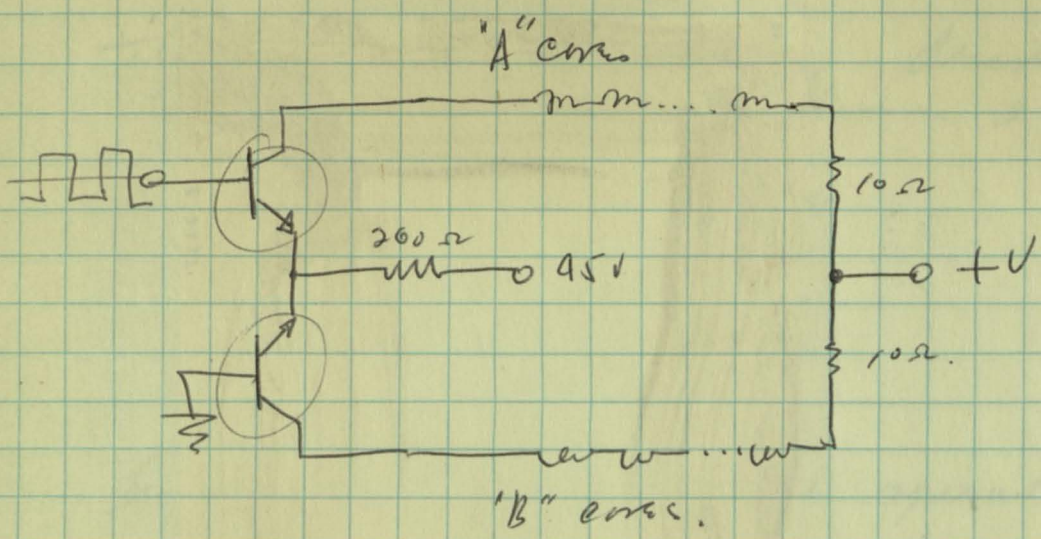 "A" cores
10 Ω
200 Ω
45V
+V
10 Ω.
"B" cores.